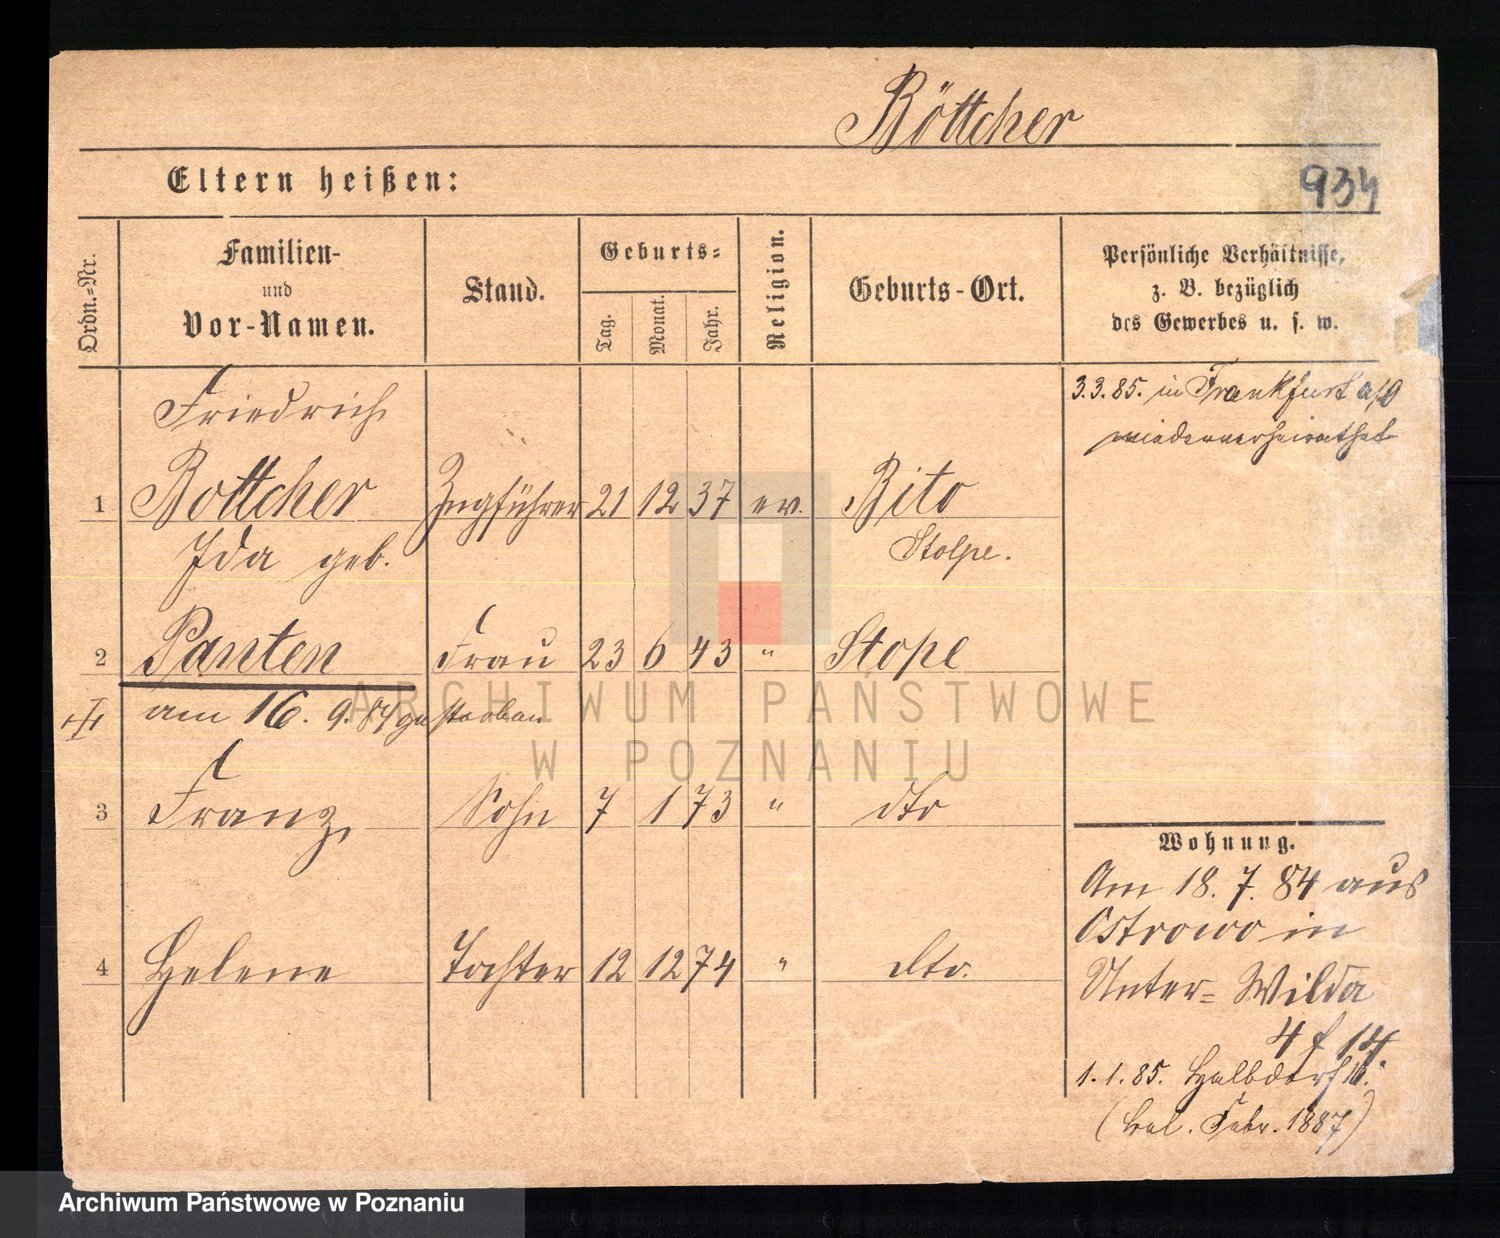 Böttcher
Eltern heißen:
934
Ordn.-Nr.
Familien-
und
Vor-Namen.
Stand.
Geburts-
Tag.
Monat.
Jahr.
Religion.
Geburts-Ort.
Persönliche Verhältnisse,
z. B. bezüglich
des Gewerbes u. s. w.
Friedrich
1 Bottcher Zugführer 21 12 37 ev. Bito
Stolpe.
Ida geb.
2 Panten Frau 23 6 43 " Stope
am 16. 9. 84 gestorben
3 Franz Sohn 7 1 73 " dto
4 Helene Tochter 12 12 74 " dto.
3.3.85. in Frankfurt a/O
wiederverheirathet
Wohnung.
Am 18. 7. 84 aus
Ostrowo in
Unter- Wilda
4 f 14.
1.1.85. Halbdorf 16.
( Febr. 1887)
ARCHIWUM PAŃSTWOWE
W POZNANIU
Archiwum Państwowe w Poznaniu